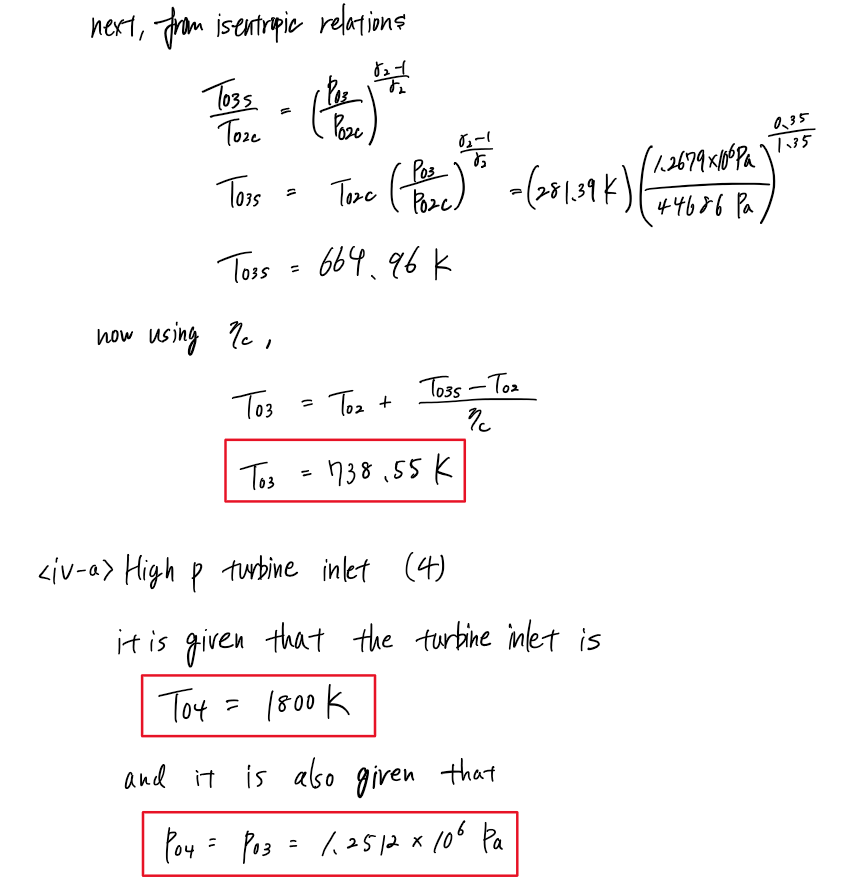 next, from isentropic relations
T03s/T02c = (P03/P02c)^((γ2-1)/γ2)
T03s = T02c (P03/P02c)^((γ2-1)/γ2) = (281.39 K)(1.2679×10^6 Pa/44686 Pa)^(0.35/1.35)
T03s = 664.96 K
now using ηc,
T03 = T02 + (T03s - T02)/ηc
T03 = 738.55 K
<iv-a> High p turbine inlet (4)
it is given that the turbine inlet is
T04 = 1800 K
and it is also given that
P04 = P03 = 1.2512 × 10^6 Pa